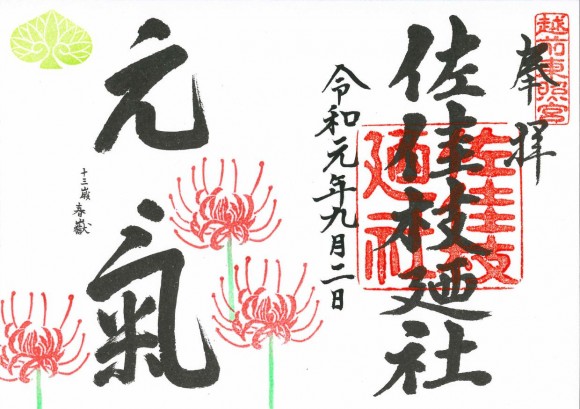 越前東照宮
奉拝
佐佳枝廼社
佐佳枝廼社
令和元年九月二日
元氣
十三歳 春嶽